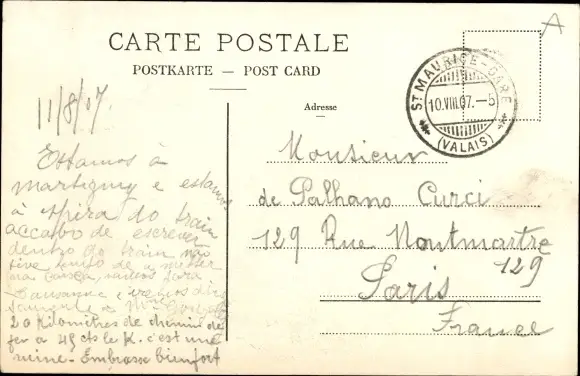 CARTE POSTALE
POSTKARTE — POST CARD
A
ST MAURICE-GARE
10.VIII.07.—5
(VALAIS)
Adresse
11/8/07
Estamos à
martigny e estamos
à spira do train
accabo de escrever
dentro do train não
tive tempo de a metter
na
Lausanne e
20 kilomètres de chemin de
fer a 45 cts le K. c'est une
mine. Embrasse bienfort
Monsieur
de Palhano Curci
129 Rue Montmartre
129
Paris
France